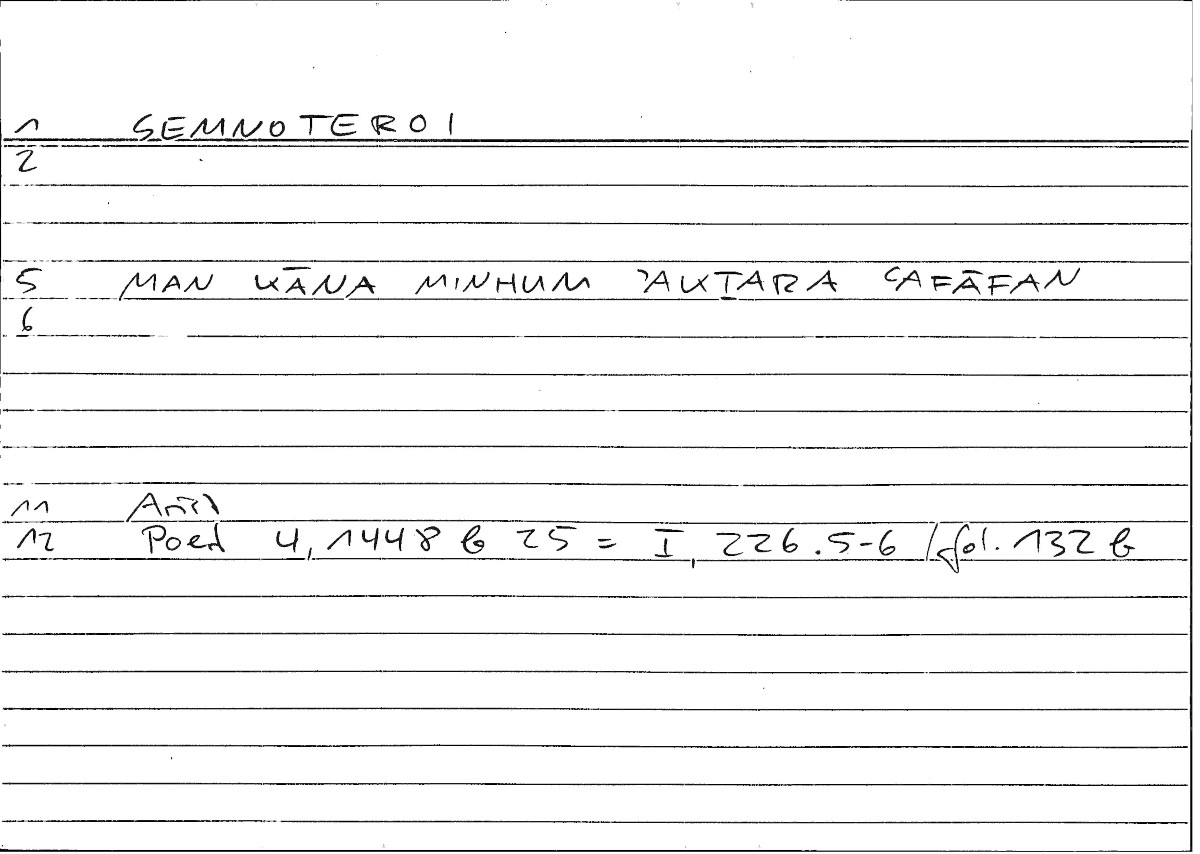 1 SEMNOTEROI
2
5 MAN KĀNA MINHUM ʾAKṮARA ʿAFĀFAN
6
11
12 Poed 4, 1448 b 25 = I, 226.5-6 / fol. 132 b